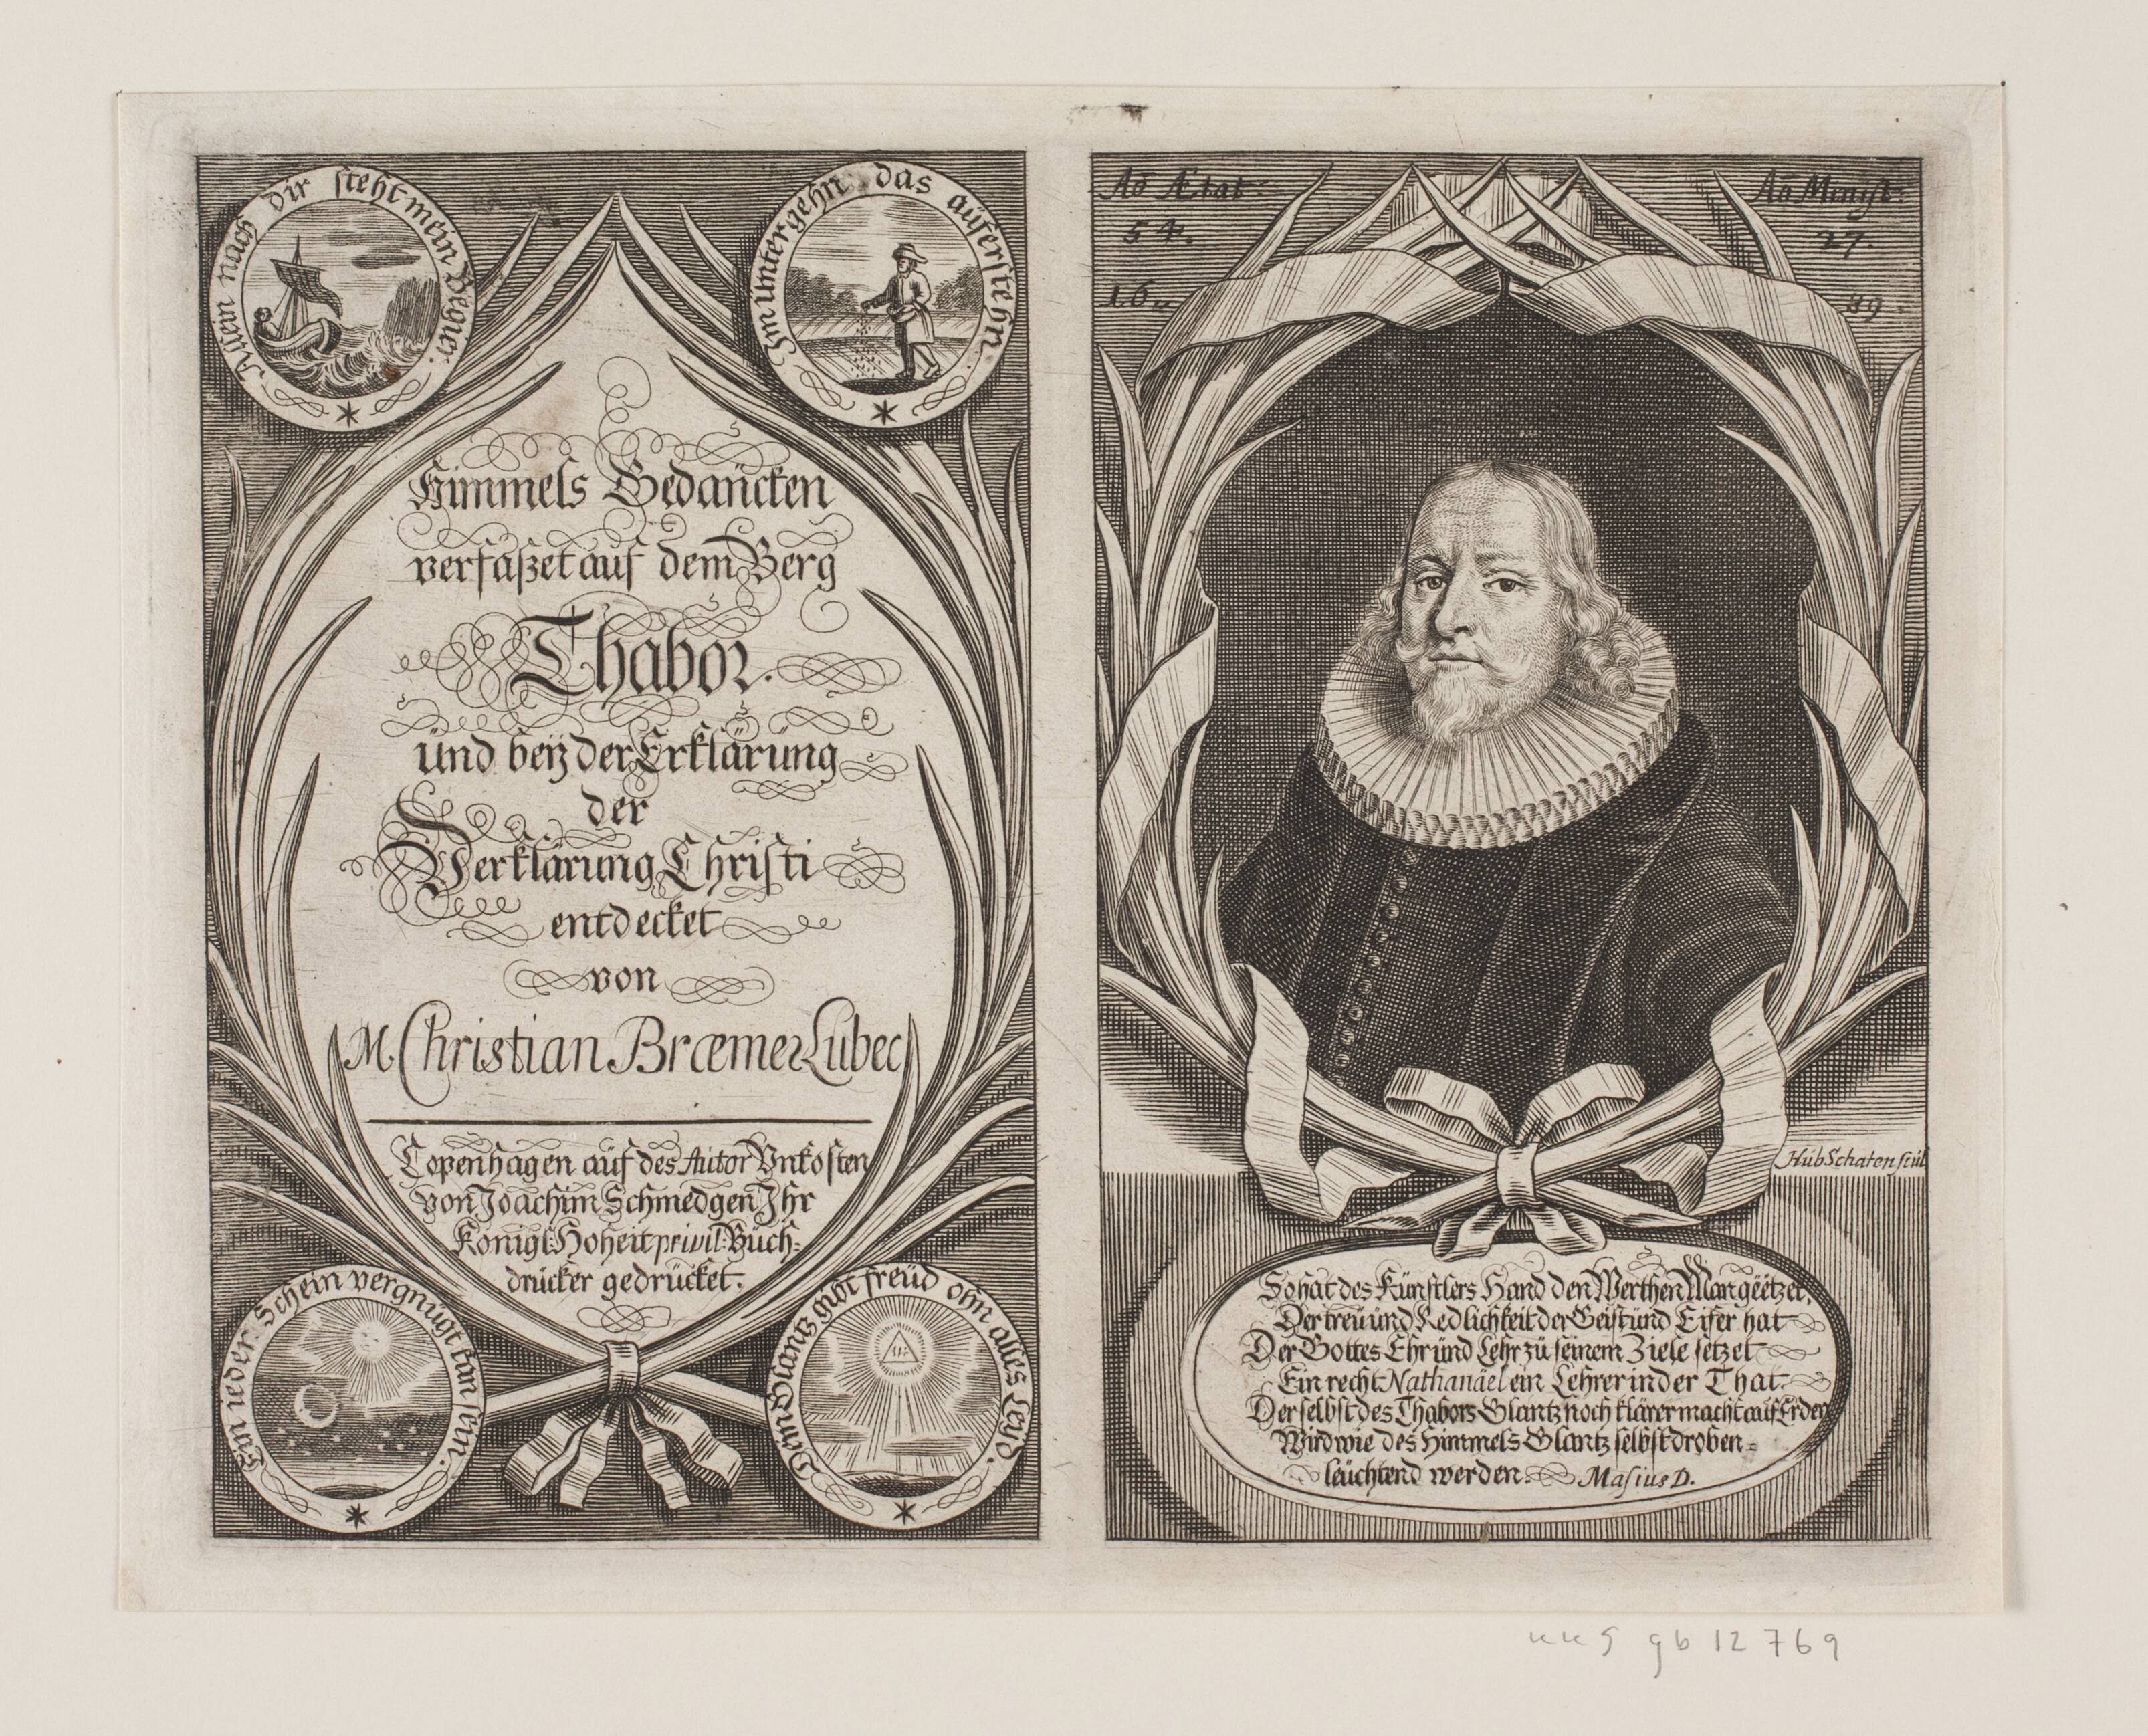 Allein nach dir steht mein Begier.
Im üntergehn das auferstehn.
Himmels Gedancken
verfaßet auf dem Berg
Thabor.
ünd beÿ der Erklärüng
der
Verklärung Christi
entdecket
von
M. Christian Bræmer Lubec
Copenhagen aüf des Autor Vnkosten
von Joachim Schmedgen Ihr
Königl: Hoheit privil: Büch=
drücker gedrücket.
Ein ieder Schein vergnügt kan sein.
Dein Glantz gibt freüd ohn alles Leÿd.
Aō Ætat:
54.
16
Aō Minist:
27.
89
Hüb Schaten scül
So hat des Künstlers Hand den Werthen Man geëtzet,
Der treü ünd Redlichkeit der Geist ünd Eifer hat
Der Gottes Ehr ünd Lehr zü seinem Ziele setzet
Ein recht Nathanäel ein Lehrer in der That.
Der selbst des Thabors Glantz noch klärer macht aüf Erden
Wird wie des Himmels Glantz selbst droben=
leüchtend werden. Masius D.
KKS gb 12769